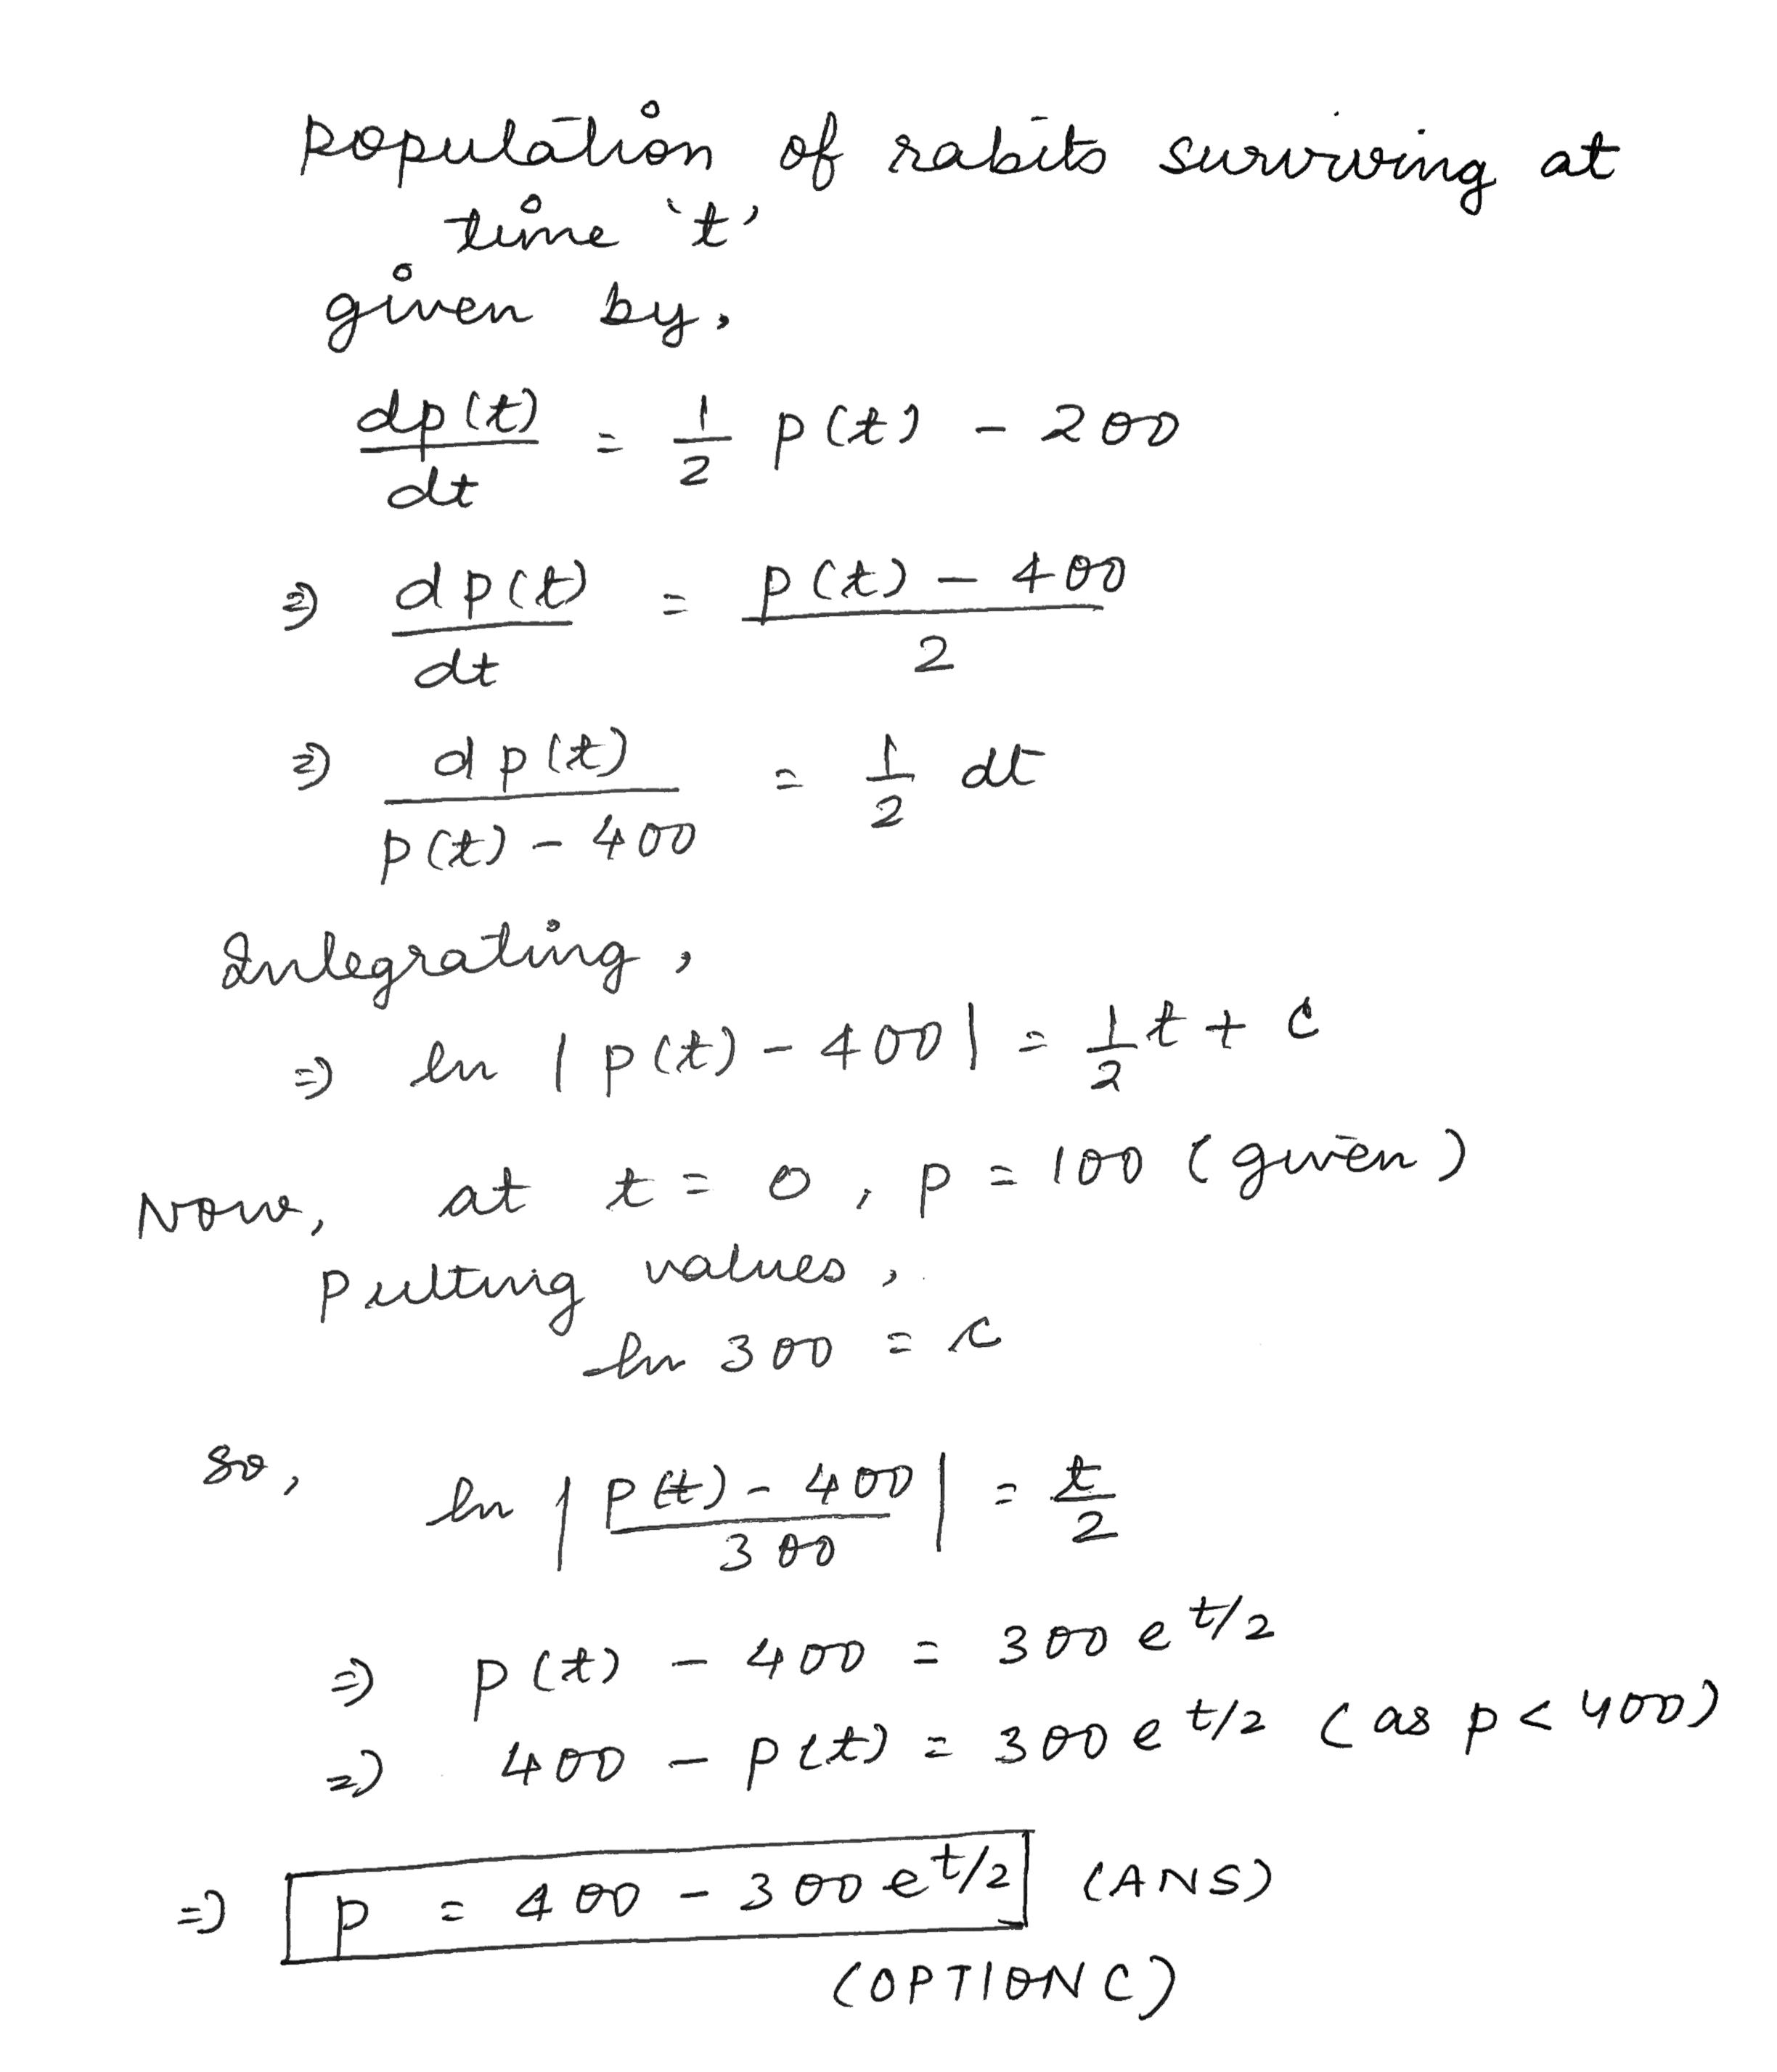 Population of rabits surviving at
time 't'
given by,
dp(t)/dt = 1/2 p(t) - 200
⇒ dp(t)/dt = (p(t) - 400)/2
⇒ dp(t)/(p(t) - 400) = 1/2 dt
Integrating,
⇒ ln |p(t) - 400| = 1/2 t + c
Now, at t = 0, p = 100 (given)
Putting values,
ln 300 = c
So, ln |(p(t) - 400)/300| = t/2
⇒ p(t) - 400 = 300 e^t/2
⇒ 400 - p(t) = 300 e^t/2 (as p < 400)
⇒ p = 400 - 300 e^t/2 (ANS)
(OPTION C)